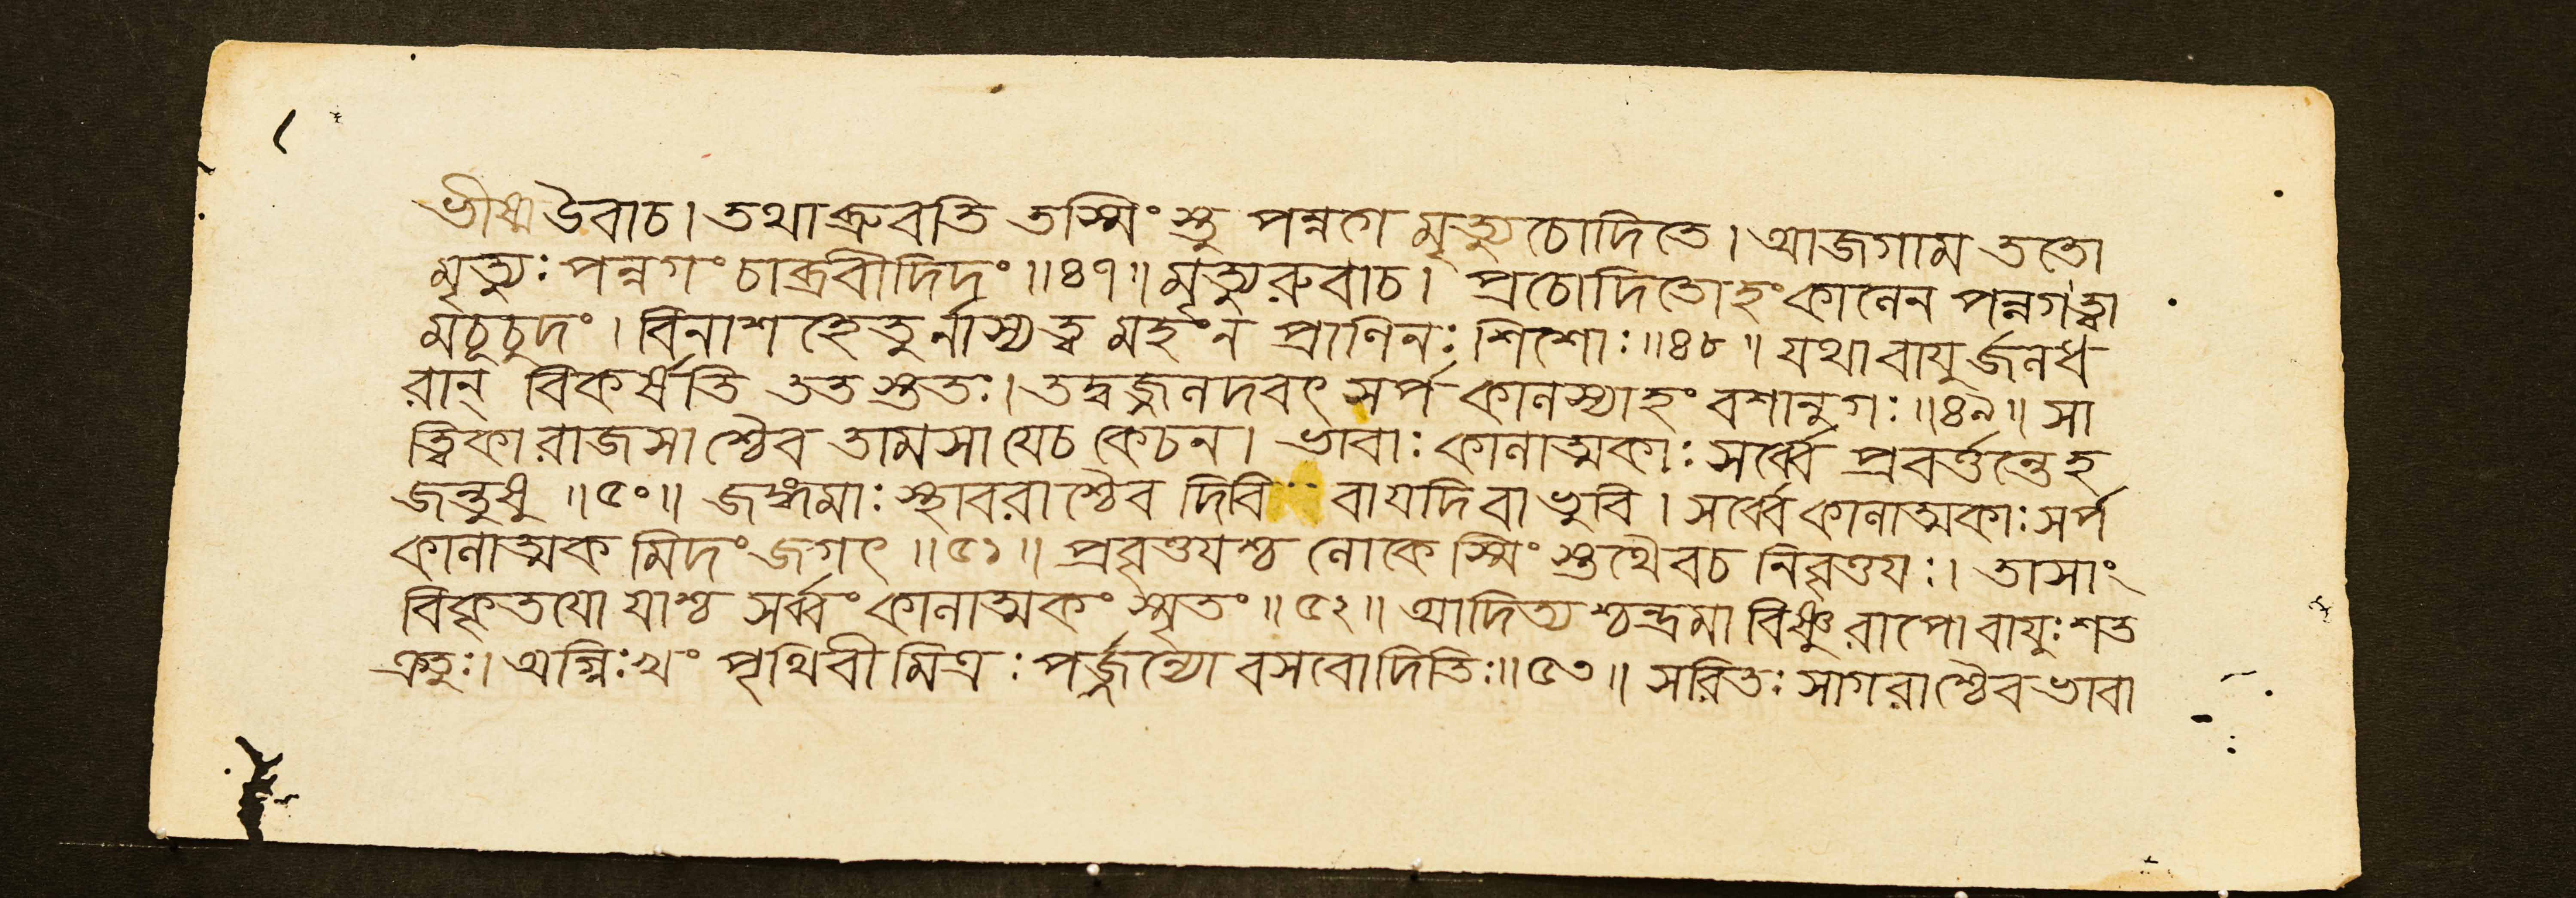 ভীষ্ম উবাচ। তথাব্রুবতি তস্মিংস্তু পন্নগে মৃত্যুচোদিতে। আজগাম ততো
মৃত্যুঃ পন্নগং চাব্রবীদিদং ॥৪৭॥ মৃত্যুরুবাচ। প্রচোদিতোহং কালেন পন্নগত্বা
মচূচুদং। বিনাশহেতুর্নাস্যত্বমহং ন প্রাণিনঃ শিশোঃ ॥৪৮॥ যথাবায়ুর্জলধ
রান্ বিকর্ষতি ততস্ততঃ। তদ্বজ্জলদবৎ সর্প কালস্যাহং বশানুগঃ ॥৪৯॥ সা
ত্বিকারাজসাশ্চৈব তামসাযেচ কেচন। ভাবাঃ কালাত্মকাঃ সর্ব্বে প্রবর্ত্তন্তেহ
জন্তুষু ॥৫০॥ জঙ্গমাঃ স্থাবরাশ্চৈব দিবি বাযদিবাভুবি। সর্ব্বেকালাত্মকাঃ সর্প
কালাত্মকমিদং জগৎ ॥৫১॥ প্রবৃত্তয়শ্চ লোকেস্মিংস্তথৈবচ নিবৃত্তয়ঃ। তাসাং
বিকৃতযো যাশ্চ সর্ব্বং কালাত্মকং স্মৃতং ॥৫২॥ আদিত্যশ্চন্দ্রমাবিষ্ণুরাপোবায়ুঃ শত
ক্রতুঃ। অগ্নিঃ খং পৃথিবীমিত্রঃ পর্জ্জন্যোবসবোদিতিঃ ॥৫৩॥ সরিতঃ সাগরাশ্চৈবভাবা